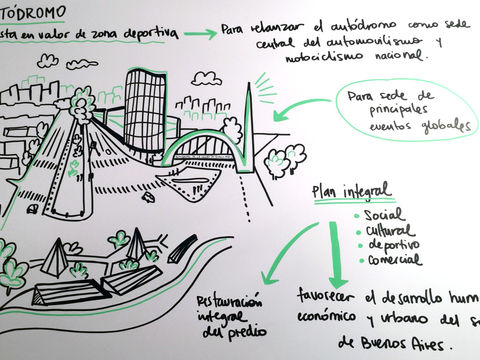 TÓDROMO
sta en valor de zona deportiva
Para relanzar el autódromo como sede
central del automovilismo y
motociclismo nacional.
Para sede de
principales
eventos globales
Plan integral
• Social
• Cultural
• deportivo
• Comercial
Restauración
integral
del predio
favorecer el desarrollo hum
económico y urbano del s
de Buenos Aires.